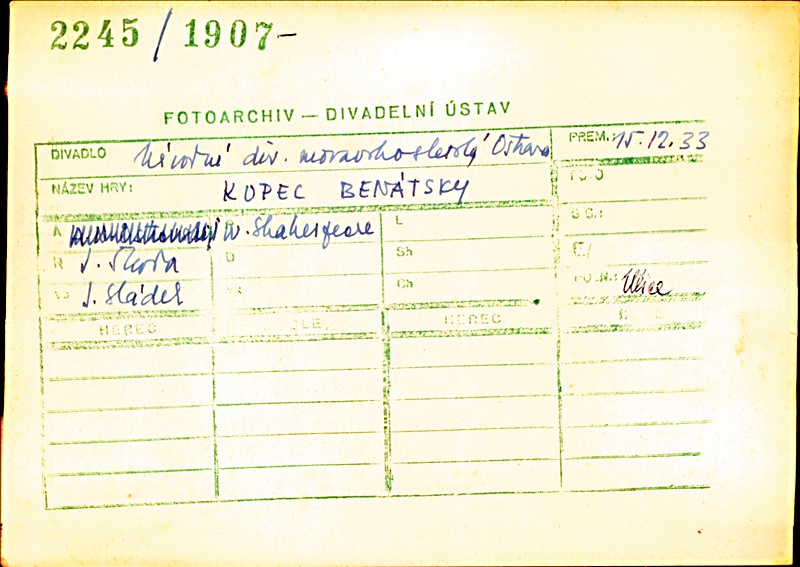 2245/1907-
FOTOARCHIV — DIVADELNÍ ÚSTAV
DIVADLO Národní div. moravskoslezský Ostrava PREM.: 15.12.33
NÁZEV HRY: KUPEC BENÁTSKY FOTO
A W. Shakespeare L
R J. Škoda D Sh
J. Sládek Ch POZN.: Ulice
HEREC ROLE HEREC